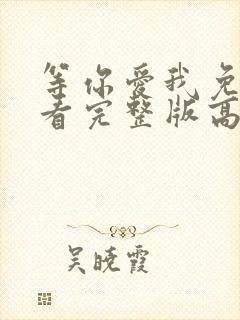 等你爱我免
看完整版高
吴晓霞